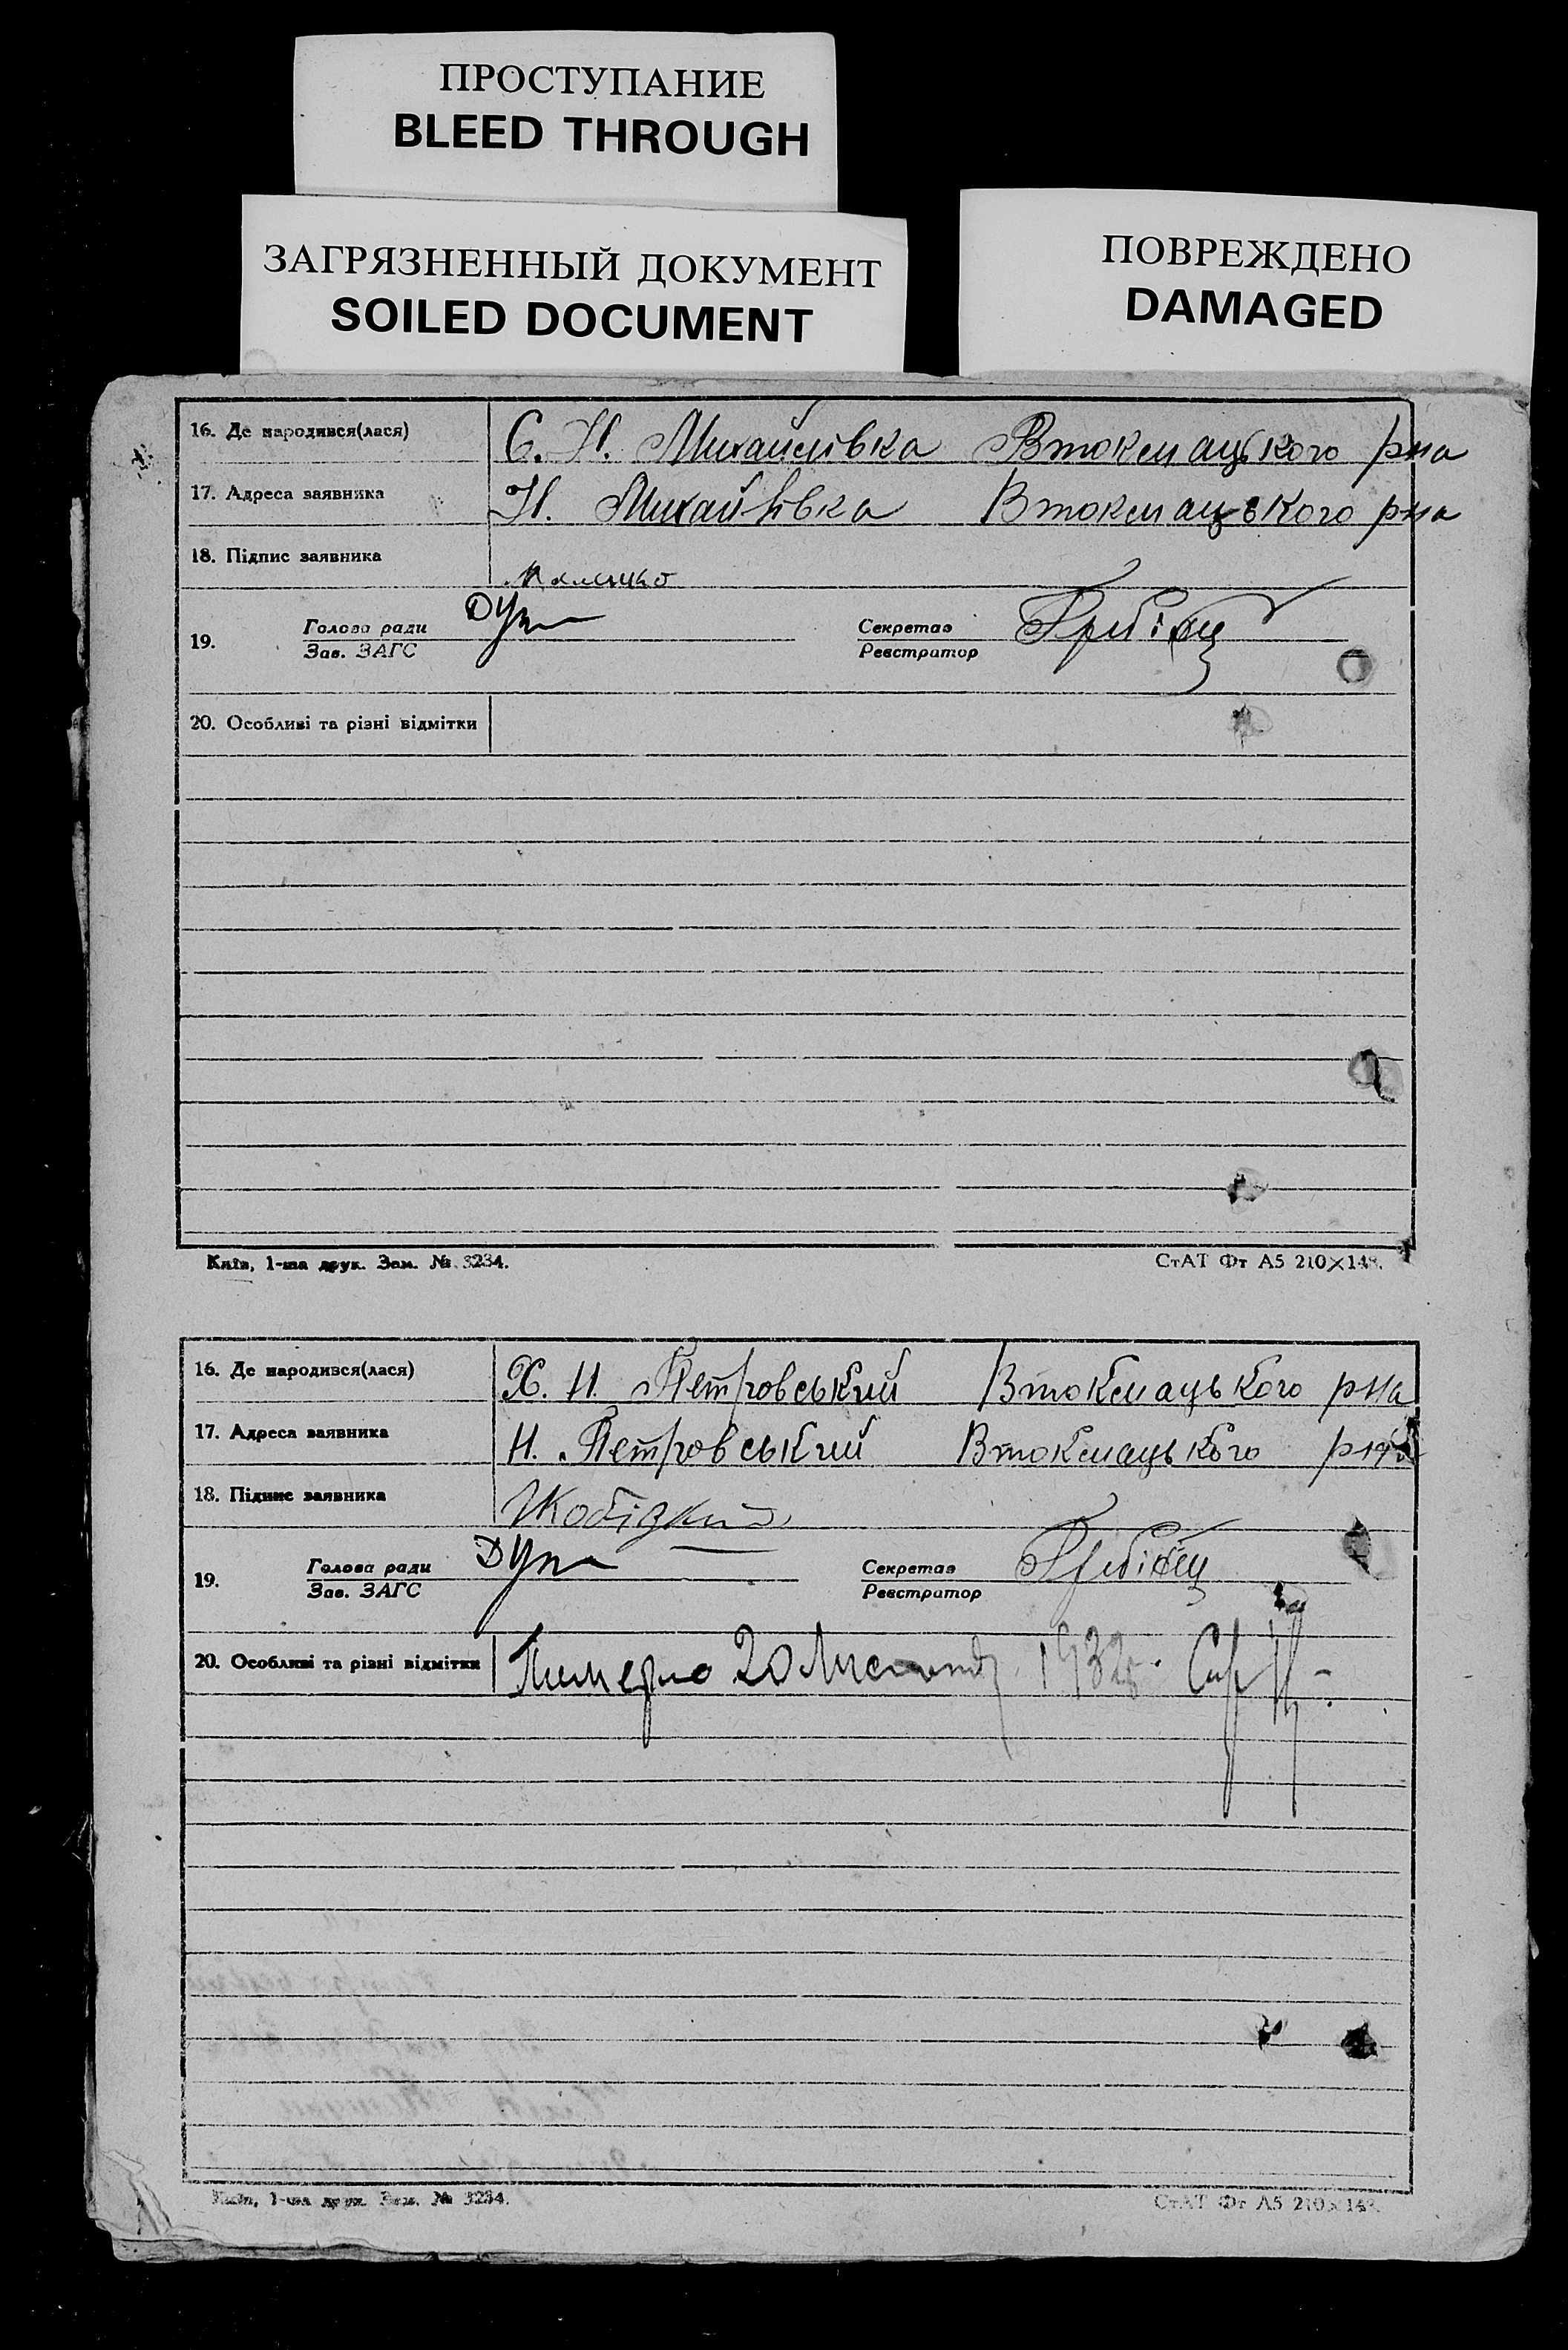 ПРОСТУПАНИЕ
BLEED THROUGH
ЗАГРЯЗНЕННЫЙ ДОКУМЕНТ
SOILED DOCUMENT
ПОВРЕЖДЕНО
DAMAGED
16. Де народився(лася) С. Н. Михайлівка Втокмацького рна
17. Адреса заявника Н. Михайлівка Втокмацького рна
18. Підпис заявника
19. Голова ради Секретар
Зав. ЗАГС Реєстратор
20. Особливі та різні відмітки
Київ, 1-ша друк. Зам. № 3234. СтАТ Фт А5 210×148.
16. Де народився(лася) Х. Н. Петровський Втокмацького рна
17. Адреса заявника Н. Петровський Втокмацького рна
18. Підпис заявника
19. Голова ради Секретар
Зав. ЗАГС Реєстратор
20. Особливі та різні відмітки 20 1932
Київ, 1-ша друк. Зам. № 3234. СтАТ Фт А5 210×148.